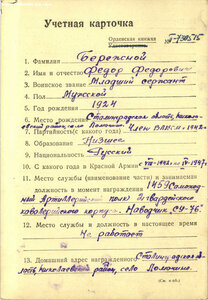 Учетная карточка
Орденская книжка
Удостоверение
1. Фамилия Бережной
2. Имя и отчество Федор Федорович
3. Воинское звание Младший сержант
4. Пол Мужской
5. Год рождения 1924
6. Место рождения Сталинградская область,
район, село
7. Партийность (с какого года) Член ВЛКСМ - 1942г.
8. Образование Низшее
9. Национальность Русский
10. С какого года в Красной Армии
11. Место службы (наименование части) и занимаемая
должность в момент награждения 1459 Самоход-
ный Артиллерийский полк Гвардейского
кавалерийского корпуса. Наводчик "СУ-76"
12. Место службы и должность в настоящее время
Не работает
13. Домашний адрес награжденного Сталинградская об-
ласть, Николаевский район, село